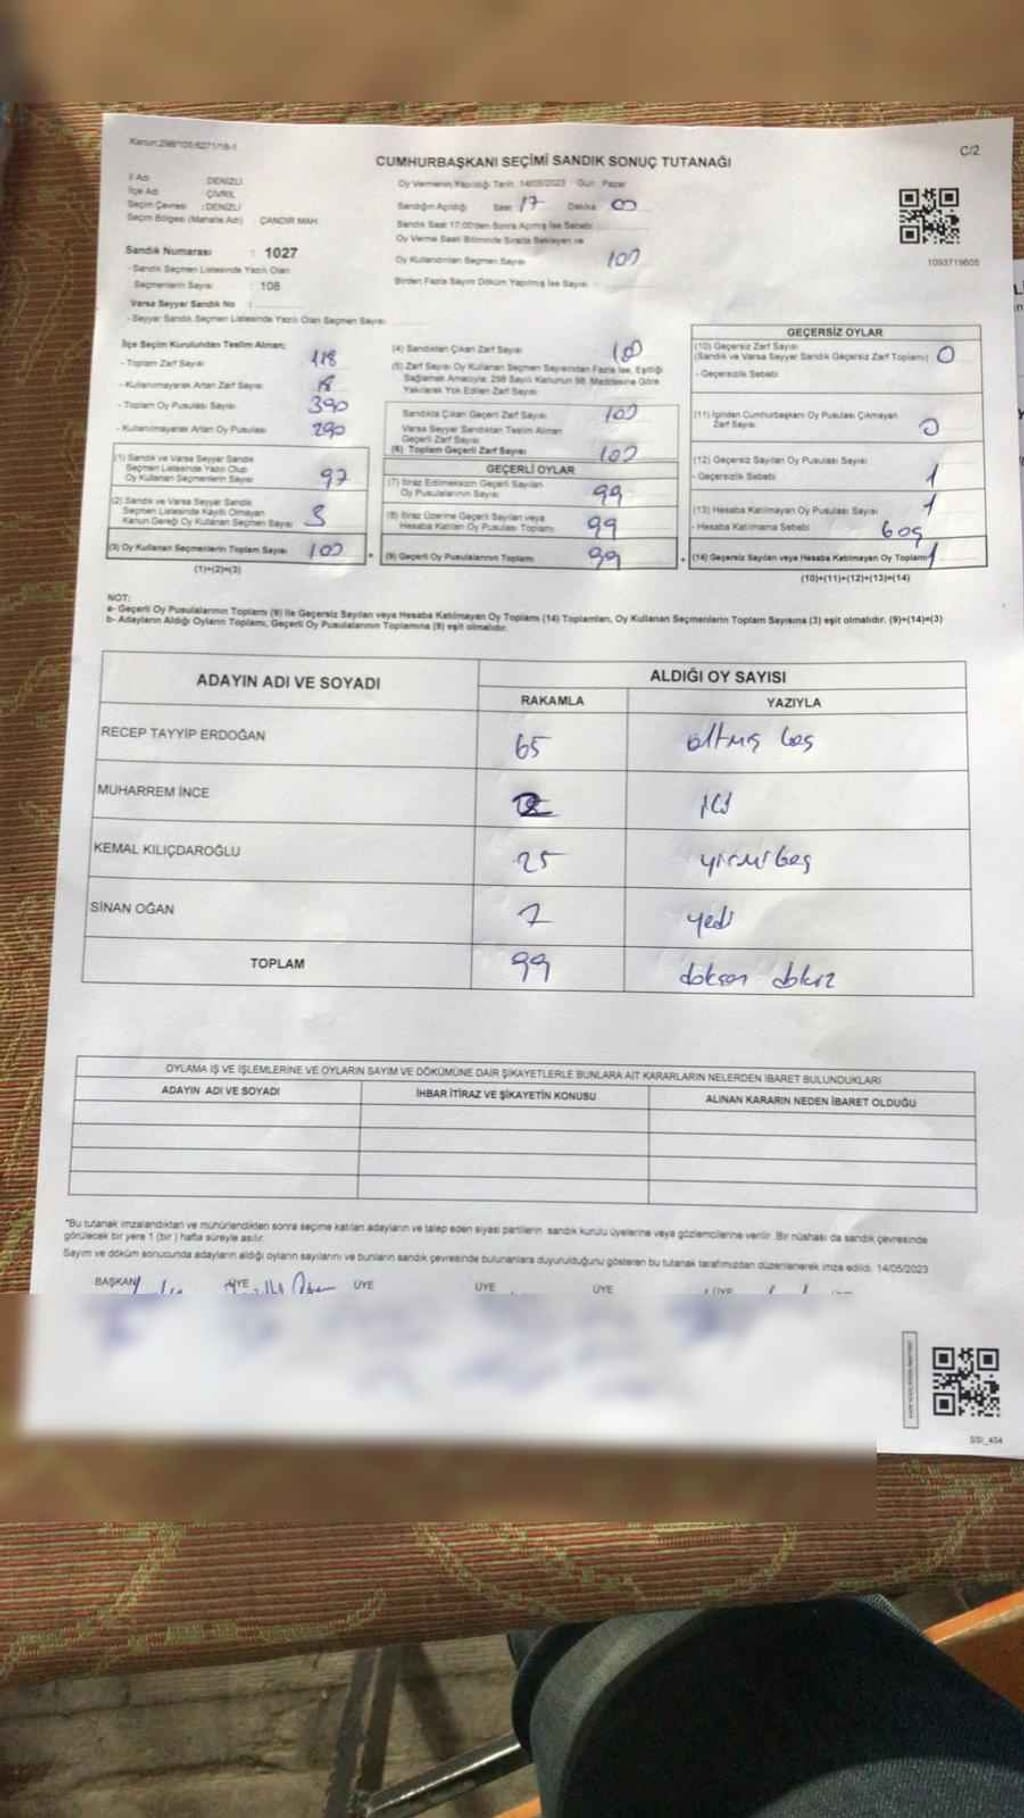 Kanun:298/105;6271/18-1
C/2
CUMHURBAŞKANI SEÇİMİ SANDIK SONUÇ TUTANAĞI
İl Adı : DENİZLİ
İlçe Adı : ÇİVRİL
Seçim Çevresi : DENİZLİ
Seçim Bölgesi (Mahalle Adı) : ÇANDIR MAH.
Sandık Numarası : 1027
- Sandık Seçmen Listesinde Yazılı Olan
Seçmenlerin Sayısı : 108
Varsa Seyyar Sandık No :
- Seyyar Sandık Seçmen Listesinde Yazılı Olan Seçmen Sayısı
Oy Vermenin Yapıldığı Tarih: 14/05/2023 Gün: Pazar
Sandığın Açıldığı Saat 17 Dakika 00
Sandık Saat 17:00'den Sonra Açılmış İse Sebebi
Oy Verme Saati Bitiminde Sırada Bekleyen ve
Oy Kullandırılan Seçmen Sayısı 100
Birden Fazla Sayım Döküm Yapılmış İse Sayısı
1093719605
İlçe Seçim Kurulundan Teslim Alınan;
- Toplam Zarf Sayısı 118
- Kullanılmayarak Artan Zarf Sayısı 18
- Toplam Oy Pusulası Sayısı 390
- Kullanılmayarak Artan Oy Pusulası 290
(1) Sandık ve Varsa Seyyar Sandık
Seçmen Listesinde Yazılı Olup
Oy Kullanan Seçmenlerin Sayısı 97
(2) Sandık ve Varsa Seyyar Sandık
Seçmen Listesinde Kayıtlı Olmayan
Kanun Gereği Oy Kullanan Seçmen Sayısı 3
(3) Oy Kullanan Seçmenlerin Toplam Sayısı 100
(1)+(2)=(3)
(4) Sandıktan Çıkan Zarf Sayısı 100
(5) Zarf Sayısı Oy Kullanan Seçmen Sayısından Fazla İse, Eşitliği
Sağlamak Amacıyla; 298 Sayılı Kanunun 98. Maddesine Göre
Yakılarak Yok Edilen Zarf Sayısı
Sandıkta Çıkan Geçerli Zarf Sayısı 100
Varsa Seyyar Sandıktan Teslim Alınan
Geçerli Zarf Sayısı
(6) Toplam Geçerli Zarf Sayısı 100
GEÇERLİ OYLAR
(7) İtiraz Edilmeksizin Geçerli Sayılan
Oy Pusulalarının Sayısı 99
(8) İtiraz Üzerine Geçerli Sayılan veya
Hesaba Katılan Oy Pusulası Toplamı 99
(9) Geçerli Oy Pusulalarının Toplamı 99
GEÇERSİZ OYLAR
(10) Geçersiz Zarf Sayısı
(Sandık ve Varsa Seyyar Sandık Geçersiz Zarf Toplamı) 0
- Geçersizlik Sebebi
(11) İçinden Cumhurbaşkanı Oy Pusulası Çıkmayan
Zarf Sayısı 0
(12) Geçersiz Sayılan Oy Pusulası Sayısı 1
- Geçersizlik Sebebi
(13) Hesaba Katılmayan Oy Pusulası Sayısı 1
- Hesaba Katılmama Sebebi boş
(14) Geçersiz Sayılan veya Hesaba Katılmayan Oy Toplamı 1
(10)+(11)+(12)+(13)=(14)
NOT:
a- Geçerli Oy Pusulalarının Toplamı (9) ile Geçersiz Sayılan veya Hesaba Katılmayan Oy Toplamı (14) Toplamları, Oy Kullanan Seçmenlerin Toplam Sayısına (3) eşit olmalıdır. (9)+(14)=(3)
b- Adayların Aldığı Oyların Toplamı, Geçerli Oy Pusulalarının Toplamına (9) eşit olmalıdır.
ADAYIN ADI VE SOYADI
ALDIĞI OY SAYISI
RAKAMLA YAZIYLA
RECEP TAYYİP ERDOĞAN 65 altmış beş
MUHARREM İNCE 2 iki
KEMAL KILIÇDAROĞLU 25 yirmi beş
SİNAN OĞAN 7 yedi
TOPLAM 99 doksan dokuz
OYLAMA İŞ VE İŞLEMLERİNE VE OYLARIN SAYIM VE DÖKÜMÜNE DAİR ŞİKAYETLERLE BUNLARA AİT KARARLARIN NELERDEN İBARET BULUNDUKLARI
ADAYIN ADI VE SOYADI İHBAR İTİRAZ VE ŞİKAYETİN KONUSU ALINAN KARARIN NEDEN İBARET OLDUĞU
*Bu tutanak imzalandıktan ve mühürlendikten sonra seçime katılan adayların ve talep eden siyasi partilerin sandık kurulu üyelerine veya gözlemcilerine verilir. Bir nüshası da sandık çevresinde
görülecek bir yere 1 (bir) hafta süreyle asılır.
Sayım ve döküm sonucunda adayların aldığı oyların sayılarını ve bunların sandık çevresinde bulunanlara duyurulduğunu gösteren bu tutanak tarafımızdan düzenlenerek imza edildi. 14/05/2023
BAŞKAN ÜYE ÜYE ÜYE ÜYE ÜYE